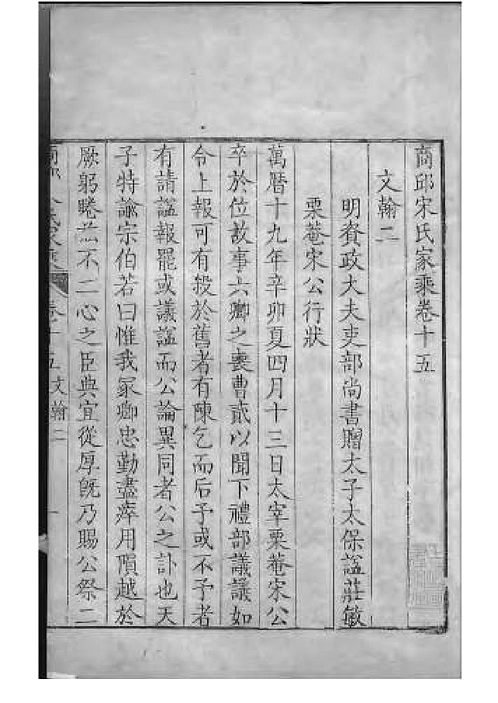 商邱宋氏家乘卷十五
文翰二
明資政大夫吏部尚書贈太子太保謚莊敏
栗菴宋公行狀
萬曆十九年辛卯夏四月十三日太宰栗菴宋公
卒於位故事六卿之喪曹貳以聞下禮部議議如
令上報可有投於舊者有陳乞而后予或不予者
有請謚報罷或議謚而公論異同者公之訃也天
子特諭宗伯若曰惟我冢卿忠勤盡瘁用隕越於
厥躬睠茲不二心之臣典宜從厚旣乃賜公祭二
卷十五文翰二 一